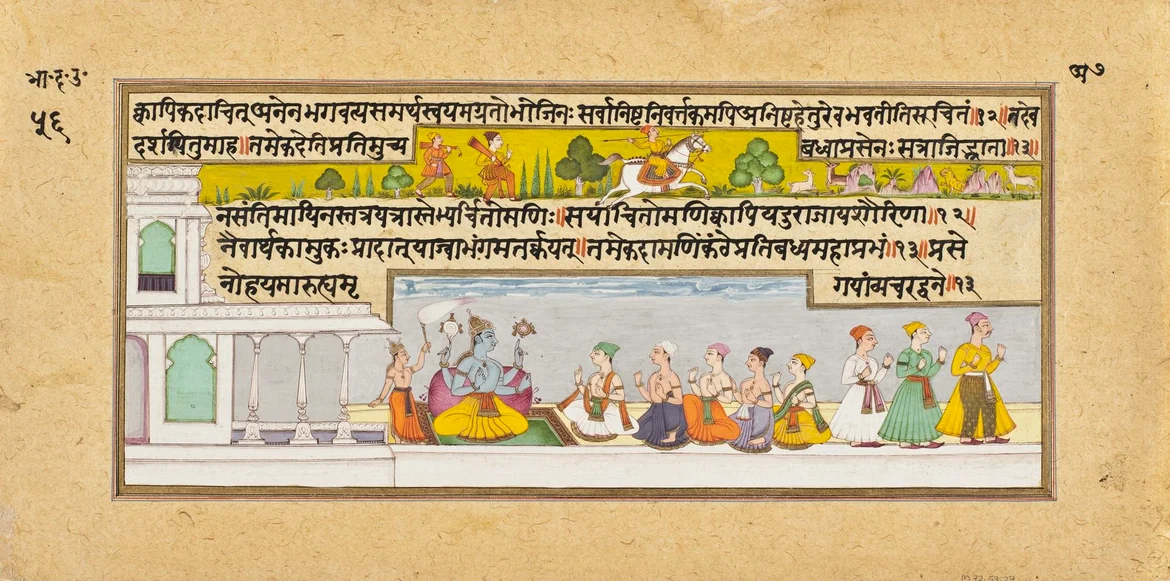 भा·द·उ·
५६
अ७
क्वापिकदाचित्अनेनभगवत्यसमर्थस्त्वयमग्रतोभोजिनः सर्वानिष्टनिवर्त्तकमपिअनिष्टहेतुरेवभवतीतिसूचितं॥१२॥तदेव
दर्शयितुमाह॥तमेकदेतिप्रतिमुच्य बध्वाप्रसेनः सत्राजिद्भ्राता॥१३॥
नसंतिमायिनस्तत्रयत्रास्तेभ्यर्चितोमणिः॥सयाचितोमणिंक्वापियदुराजायशौरिणा॥१२॥
नैवार्थकामुकः प्रादात्याच्ञाभंगमतर्कयन्॥तमेकदामणिंकंठेप्रतिबध्यमहाप्रभं॥१३॥प्रसे
नोहयमारुह्यमृ गयांव्यचरद्वने॥१३